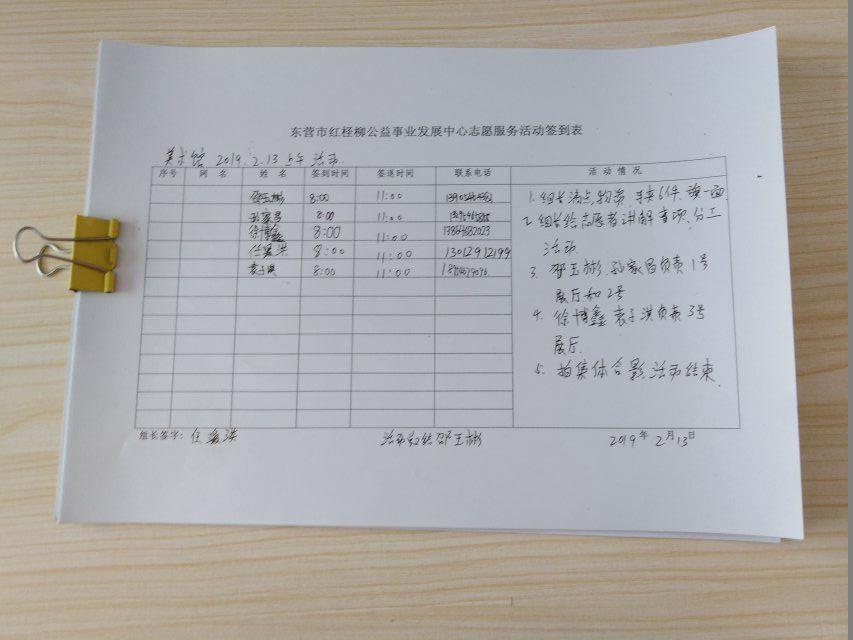 东营市红柽柳公益事业发展中心志愿服务活动签到表
美术馆 2019.2.13 上午 活动
序号 网名 姓名 签到时间 签送时间 联系电话 活动情况
邵玉彬 8:00 11:00
孙家昌 8:00 11:00
徐博鑫 8:00 11:00 13864682023
任爱洪 8:00 11:00 13012912199
袁子洪 8:00 11:00
1. 组长清点物资, 马夹6件, 旗一面
2. 组长给志愿者讲解事项, 分工
活动.
3. 邵玉彬. 孙家昌负责1号
展厅和2号
4. 徐博鑫 袁子洪负责3号
展厅.
5. 拍集体合影, 活动结束.
组长签字: 任爱洪 活动总结 邵玉彬 2019年2月13日